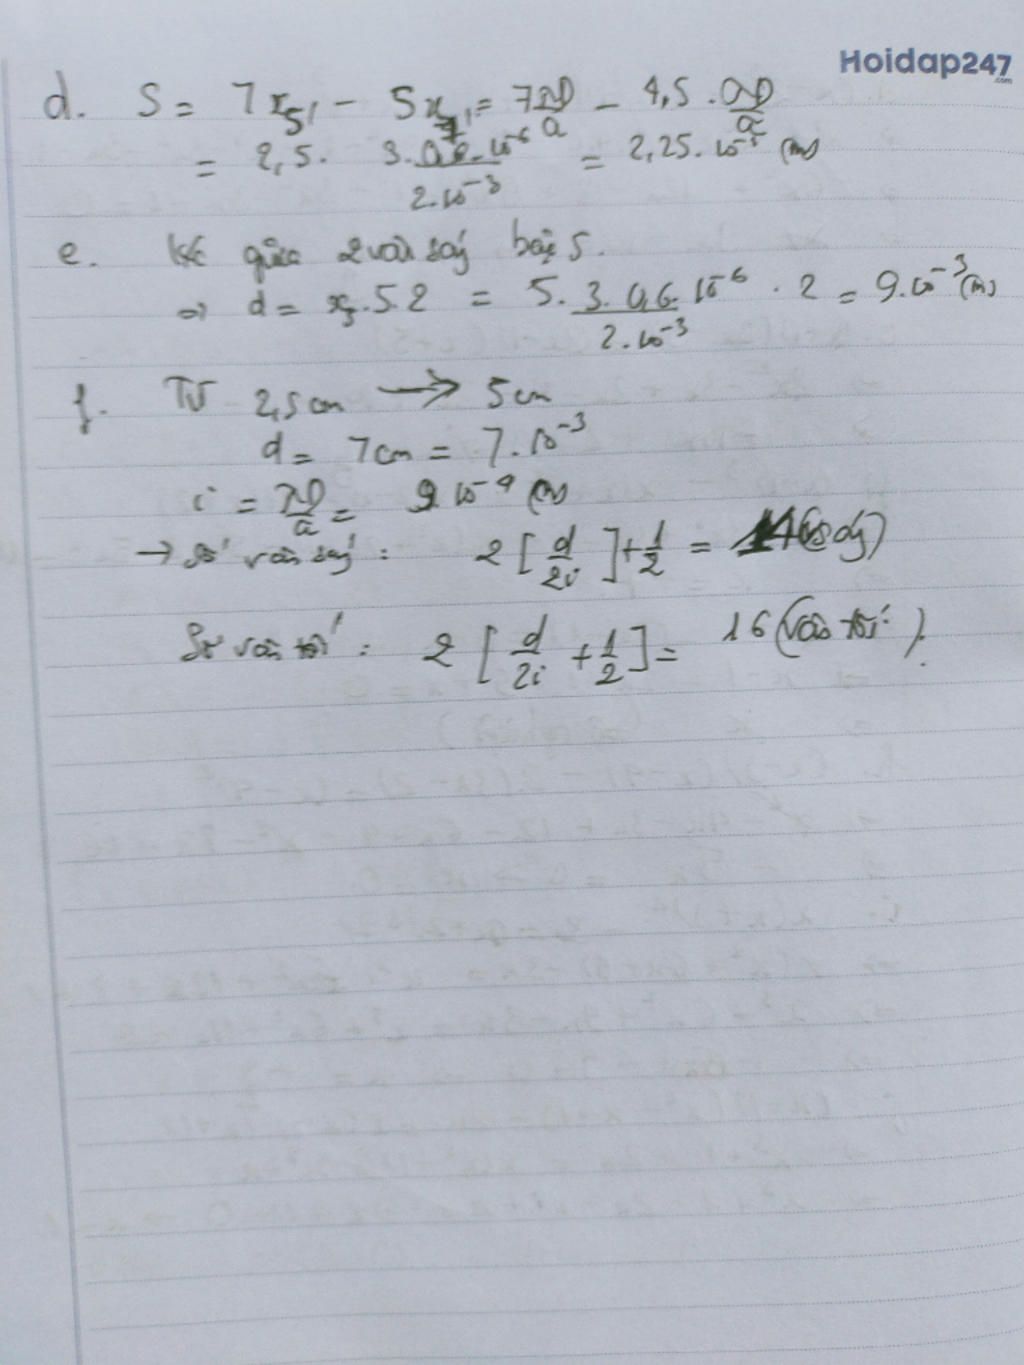 Hoidap247
.com
d. S = 7x_{s'} - 5x = 7\frac{λD}{a} - 4,5 . \frac{λD}{a}
= 2,5 . \frac{3.0,6.10^{-6}}{2.10^{-3}} = 2,25.10^{-3} (m)
e. k/c giữa 2 vân sáng bậc 5.
=> d = x_s.5.2 = 5 . \frac{3.0,6.10^{-6}}{2.10^{-3}} . 2 = 9.10^{-3} (m)
f. Từ 2,5cm → 5cm
d = 7cm = 7.10^{-3}
i = \frac{λD}{a} = 9 10^{-4} (m)
→ Số vân sáng : 2 [\frac{d}{2i}] + \frac{1}{2} = (vsáng)
Số vân tối : 2 [\frac{d}{2i} + \frac{1}{2}] = 16 (vân tối).